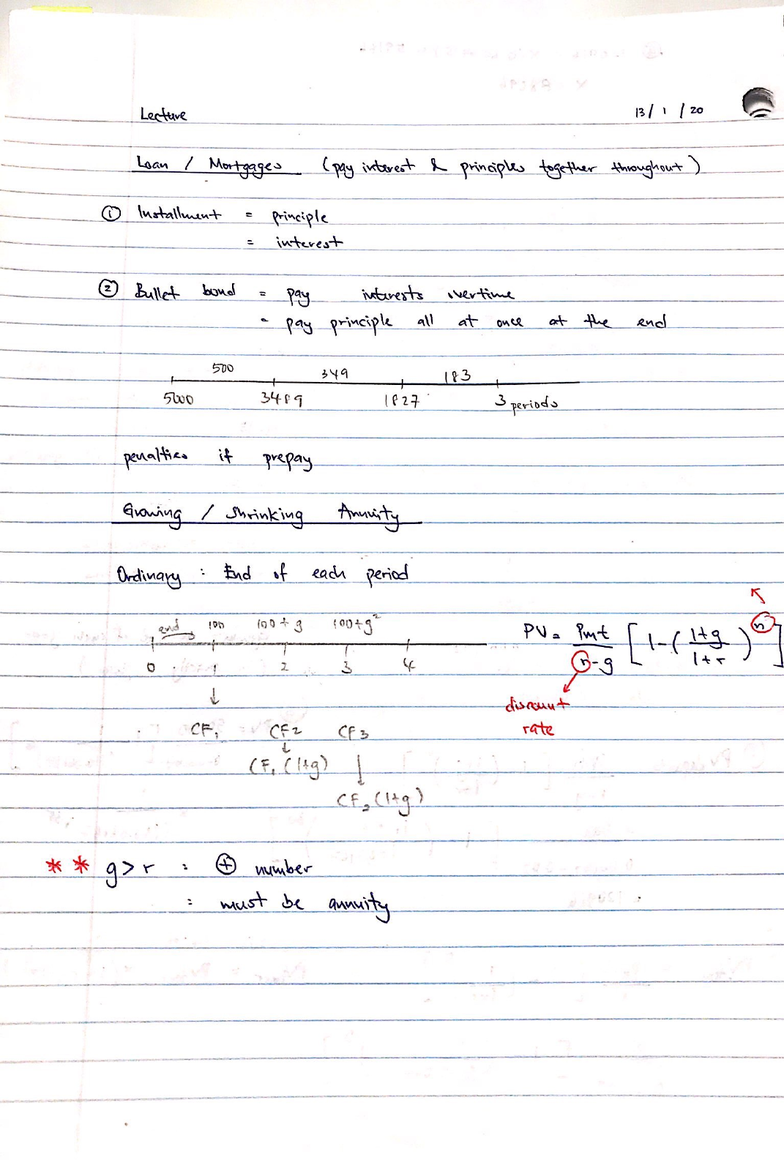 Lecture 13/1/20
Loan / Mortgages (pay interest & principles together throughout)
① Installment = principle
= interest
② Bullet bond = pay interests overtime
- pay principle all at once at the end
500 349 183
5000 3489 1827 3 periods
penalties if prepay
Growing / Shrinking Annuity
Ordinary : End of each period
end 100 100+g 100+g²
0 1 2 3 4
PV = Pmt/(r-g) [1-((1+g)/(1+r))^n]
discount
rate
CF₁ CF2 CF3
CF₁(1+g)
CF₂(1+g)
** g>r : ⊕ number
: must be annuity